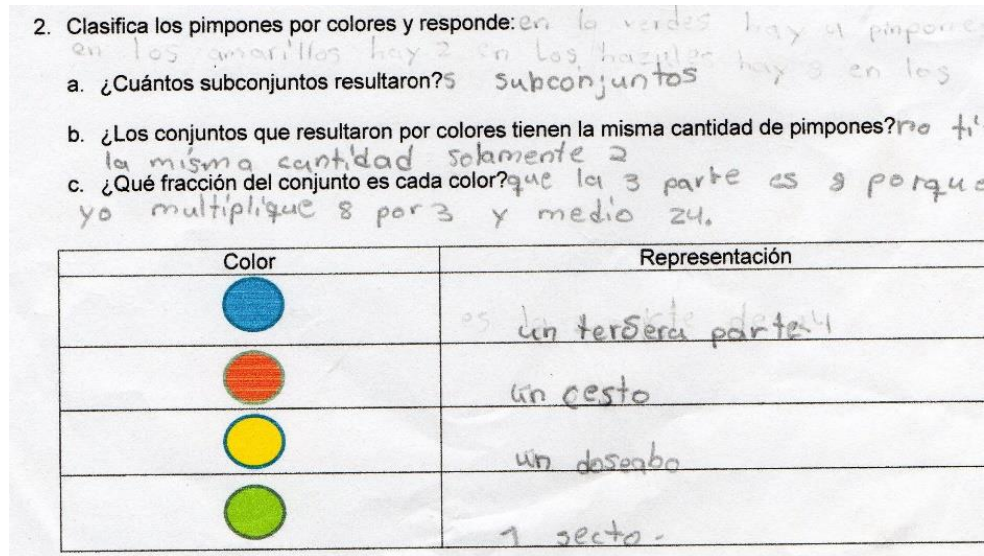 2. Clasifica los pimpones por colores y responde: en lo verdes hay 4 pinpone
en los amarillos hay 2 en los hazules hay 8 en los
a. ¿Cuántos subconjuntos resultaron? 5 subconjuntos
b. ¿Los conjuntos que resultaron por colores tienen la misma cantidad de pimpones? no ti
la misma cantidad solamente 2
c. ¿Qué fracción del conjunto es cada color? que la 3 parte es 8 porque
yo multiplique 8 por 3 y medio 24.
Color Representación
un tersera parte
un cesto
un doseabo
1 secto.